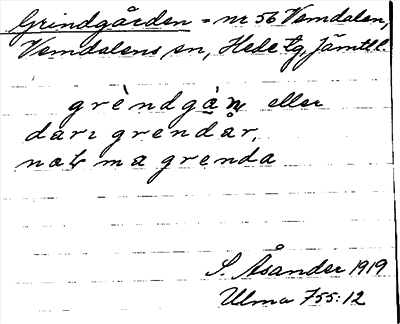 Grindgården = nr 56 Vemdalen,
Vemdalens sn, Hede tg, Jämtl.
grèndgàɳ eller
darɪ grendår,
ma grenda
S. Åsander 1919
Ulma 755:12